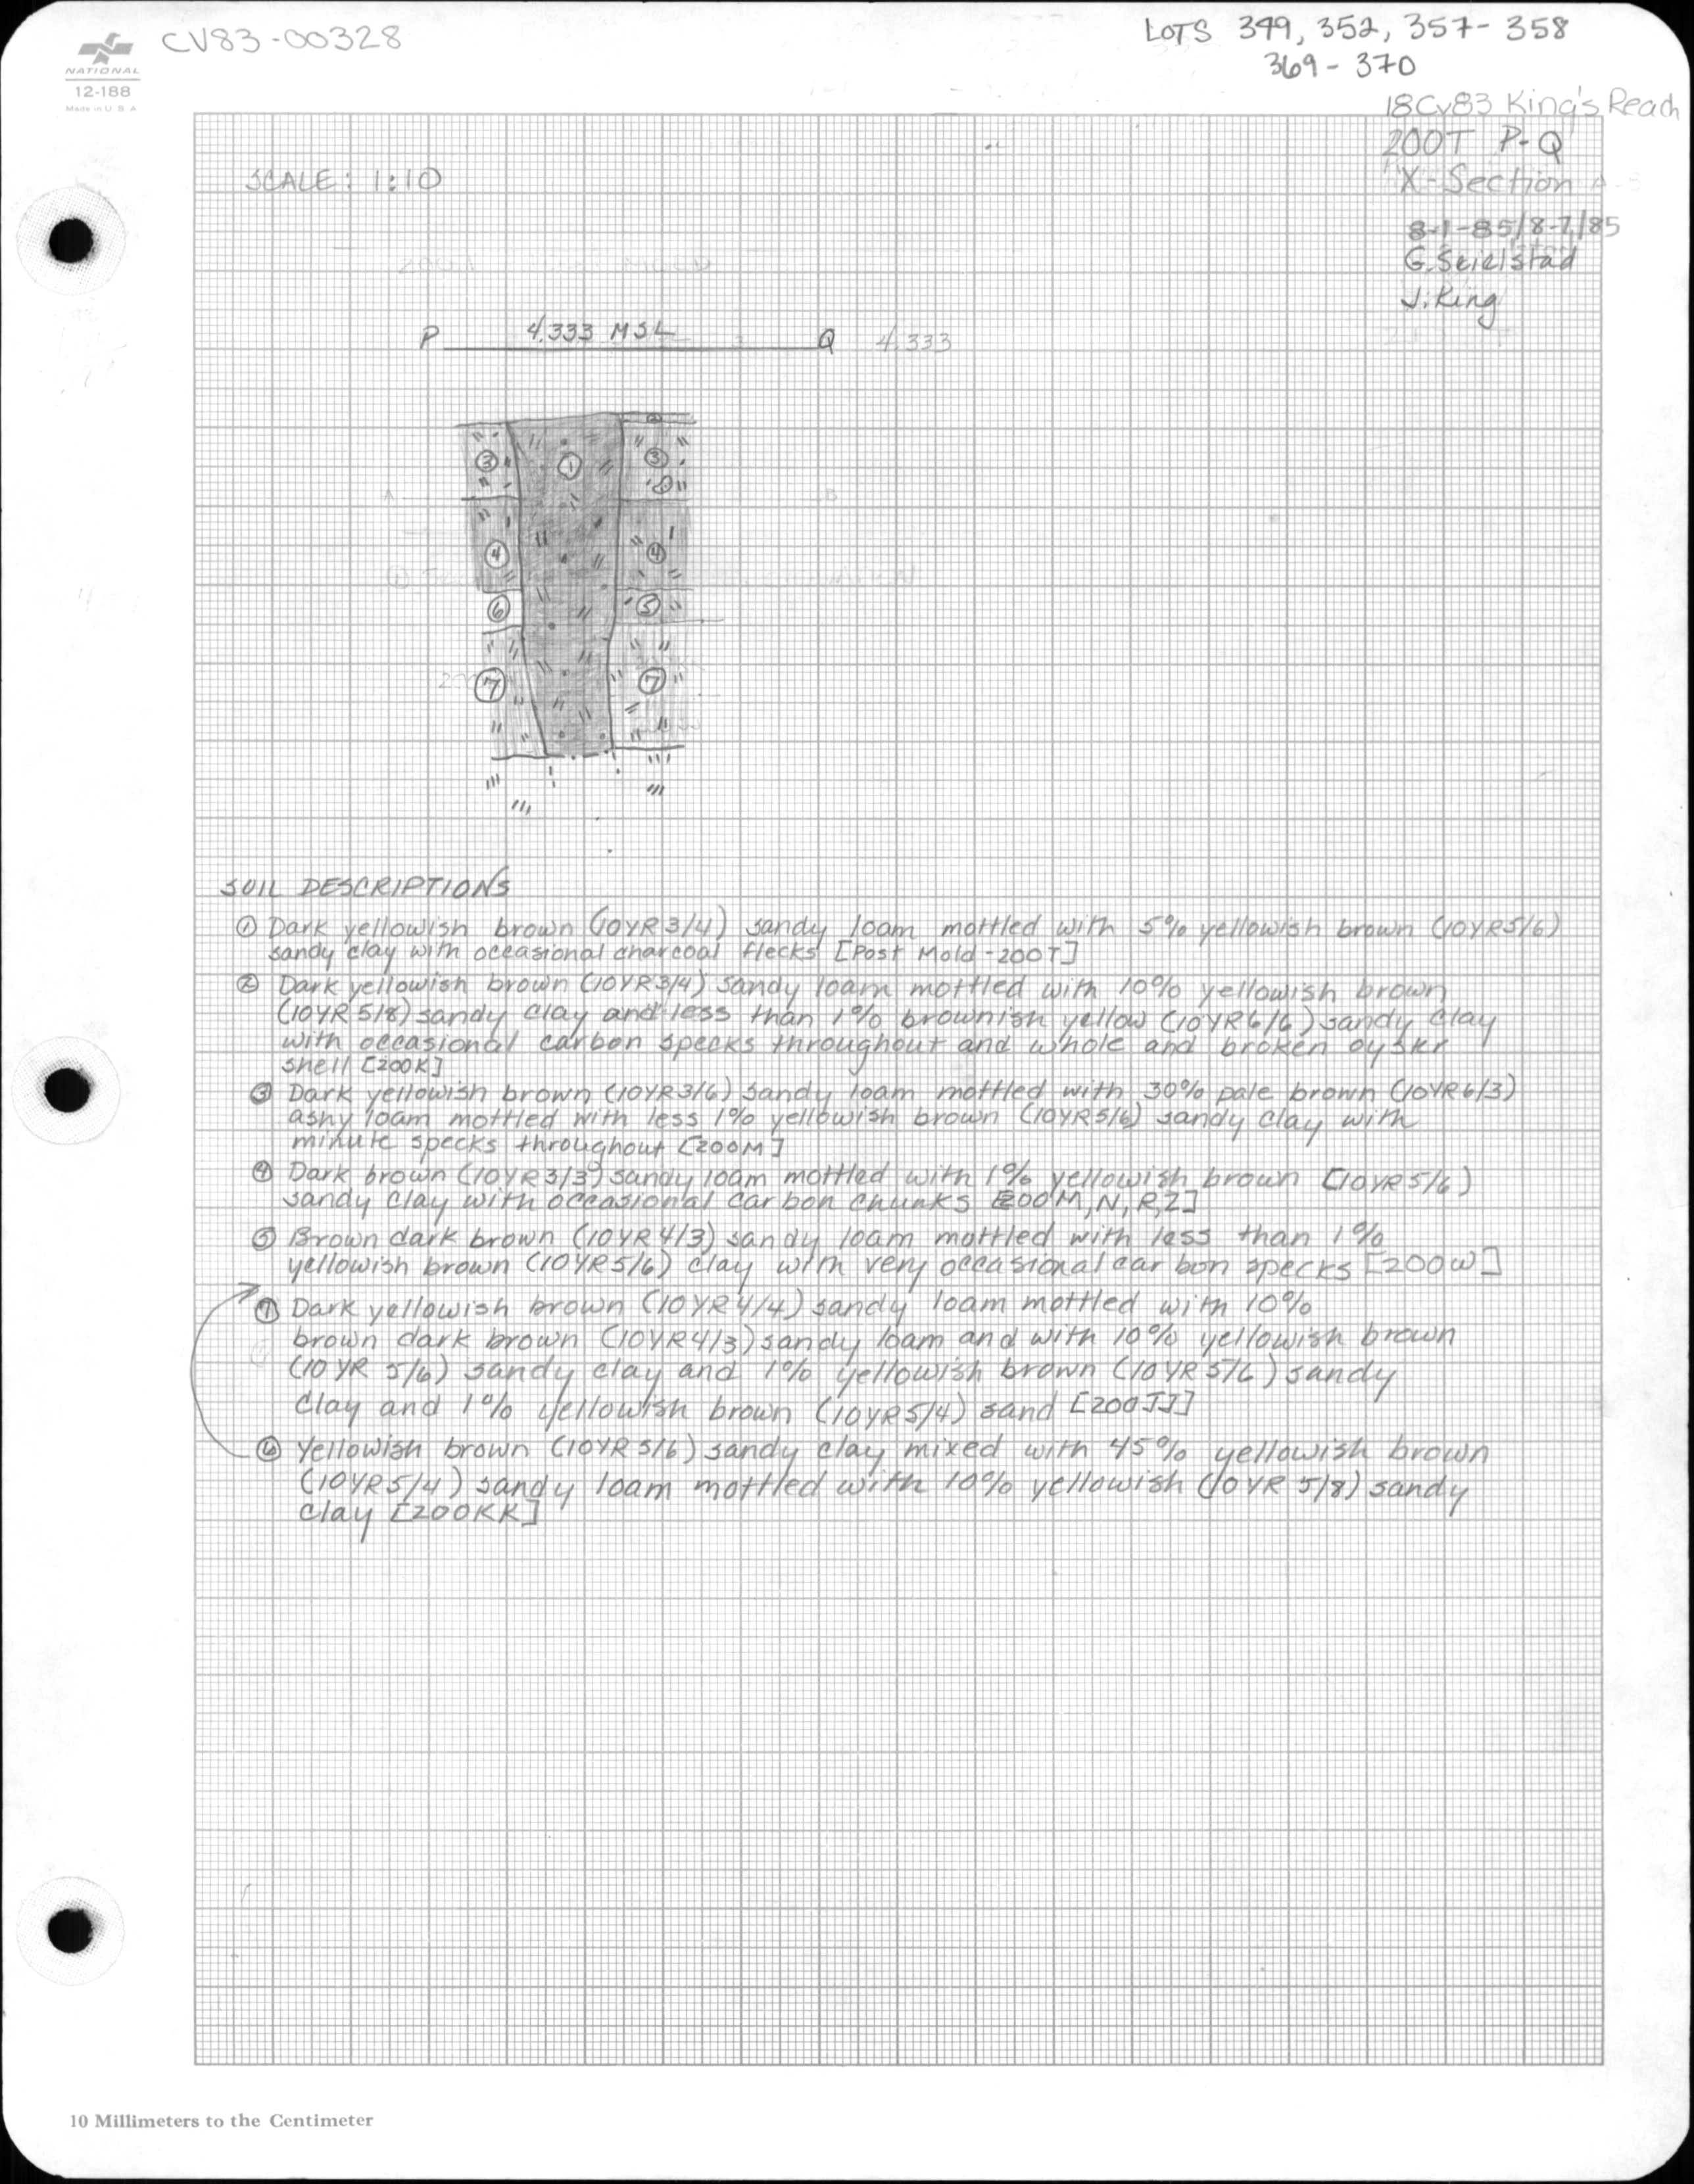 CV83-00328
LOTS 349, 352, 357-358
369-370
NATIONAL
12-188
Made in U.S.A
18Cv83 King's Reach
200T P-Q
X-Section
SCALE: 1:10
8-1-85/8-7/85
G. Seielstad
J. King
P 4.333 MSL Q 4.333
2
3 1 3
4 4
6 5
7 7
SOIL DESCRIPTIONS
① Dark yellowish brown (10YR3/4) sandy loam mottled with 5% yellowish brown (10YR5/6)
sandy clay with occasional charcoal flecks [Post Mold-200T]
② Dark yellowish brown (10YR3/4) sandy loam mottled with 10% yellowish brown
(10YR5/8) sandy clay and less than 1% brownish yellow (10YR6/6) sandy clay
with occasional carbon specks throughout and whole and broken oyster
shell [200K]
③ Dark yellowish brown (10YR3/6) sandy loam mottled with 30% pale brown (10YR6/3)
ashy loam mottled with less 1% yellowish brown (10YR5/6) sandy clay with
minute specks throughout [200M]
④ Dark brown (10YR3/3) sandy loam mottled with 1% yellowish brown (10YR5/6)
sandy clay with occasional carbon chunks [200M,N,R,Z]
⑤ Brown dark brown (10YR4/3) sandy loam mottled with less than 1%
yellowish brown (10YR5/6) clay with very occasional carbon specks [200W]
⑦ Dark yellowish brown (10YR4/4) sandy loam mottled with 10%
brown dark brown (10YR4/3) sandy loam and with 10% yellowish brown
(10YR 5/6) sandy clay and 1% yellowish brown (10YR5/6) sandy
clay and 1% yellowish brown (10YR5/4) sand [200JJ]
⑥ Yellowish brown (10YR5/6) sandy clay mixed with 45% yellowish brown
(10YR5/4) sandy loam mottled with 10% yellowish (10YR 5/8) sandy
clay [200KK]
10 Millimeters to the Centimeter